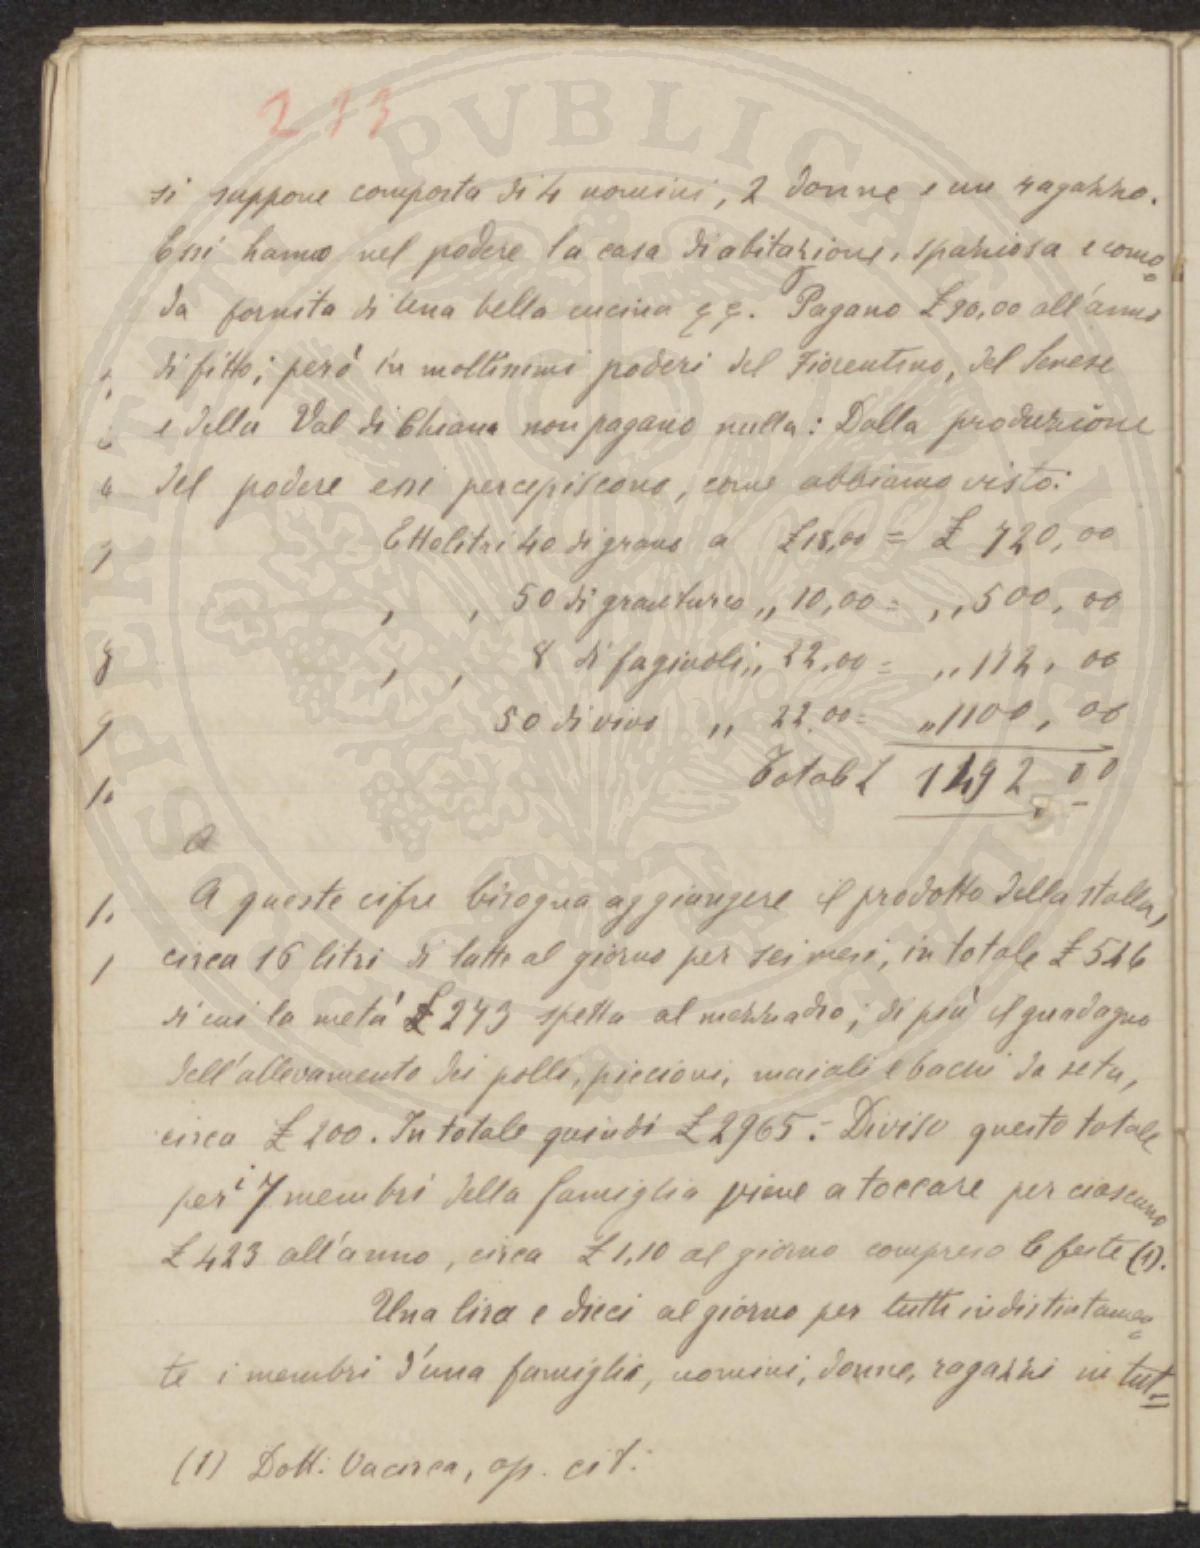 273
si suppone composta di 4 uomini, 2 donne e un ragazzo.
Essi hanno nel podere la casa di abitazione, spaziosa e como=
da fornita di una bella cucina ç ç. Pagano £ 90,00 all'anno
di fitto; però in moltissimi poderi del Fiorentino, del Senese
e della Val di Chiana non pagano nulla: Dalla produzione
del podere essi percepiscono, come abbiamo visto:
Ettolitri 40 di grano a £ 18,00 = £ 720,00
, , 50 di granturco ,, 10,00 = ,, 500,00
, , 8 di fagiuoli ,, 22,00 = ,, 172,00
50 di vino ,, 22.00 = ,, 1100,00
Totale £ 1492 00
A
A queste cifre bisogna aggiungere il prodotto della stalla,
circa 16 litri di latte al giorno per sei mesi, in totale £ 546
di cui la metà £ 273 spetta al mezzadro; di più il guadagno
dell'allevamento dei polli, piccioni, maiali e bachi da seta,
circa £ 200. In totale quindi £ 2965.- Diviso questo totale
per i 7 membri della famiglia viene a toccare per ciascuno
£ 423 all'anno, circa £ 1,10 al giorno compreso le feste (1).
Una lira e dieci al giorno per tutti indistintamen=
te i membri d'una famiglia, uomini, donne, ragazzi in tut=
(1) Dott: Vacirca, op. cit:
PVBLICA